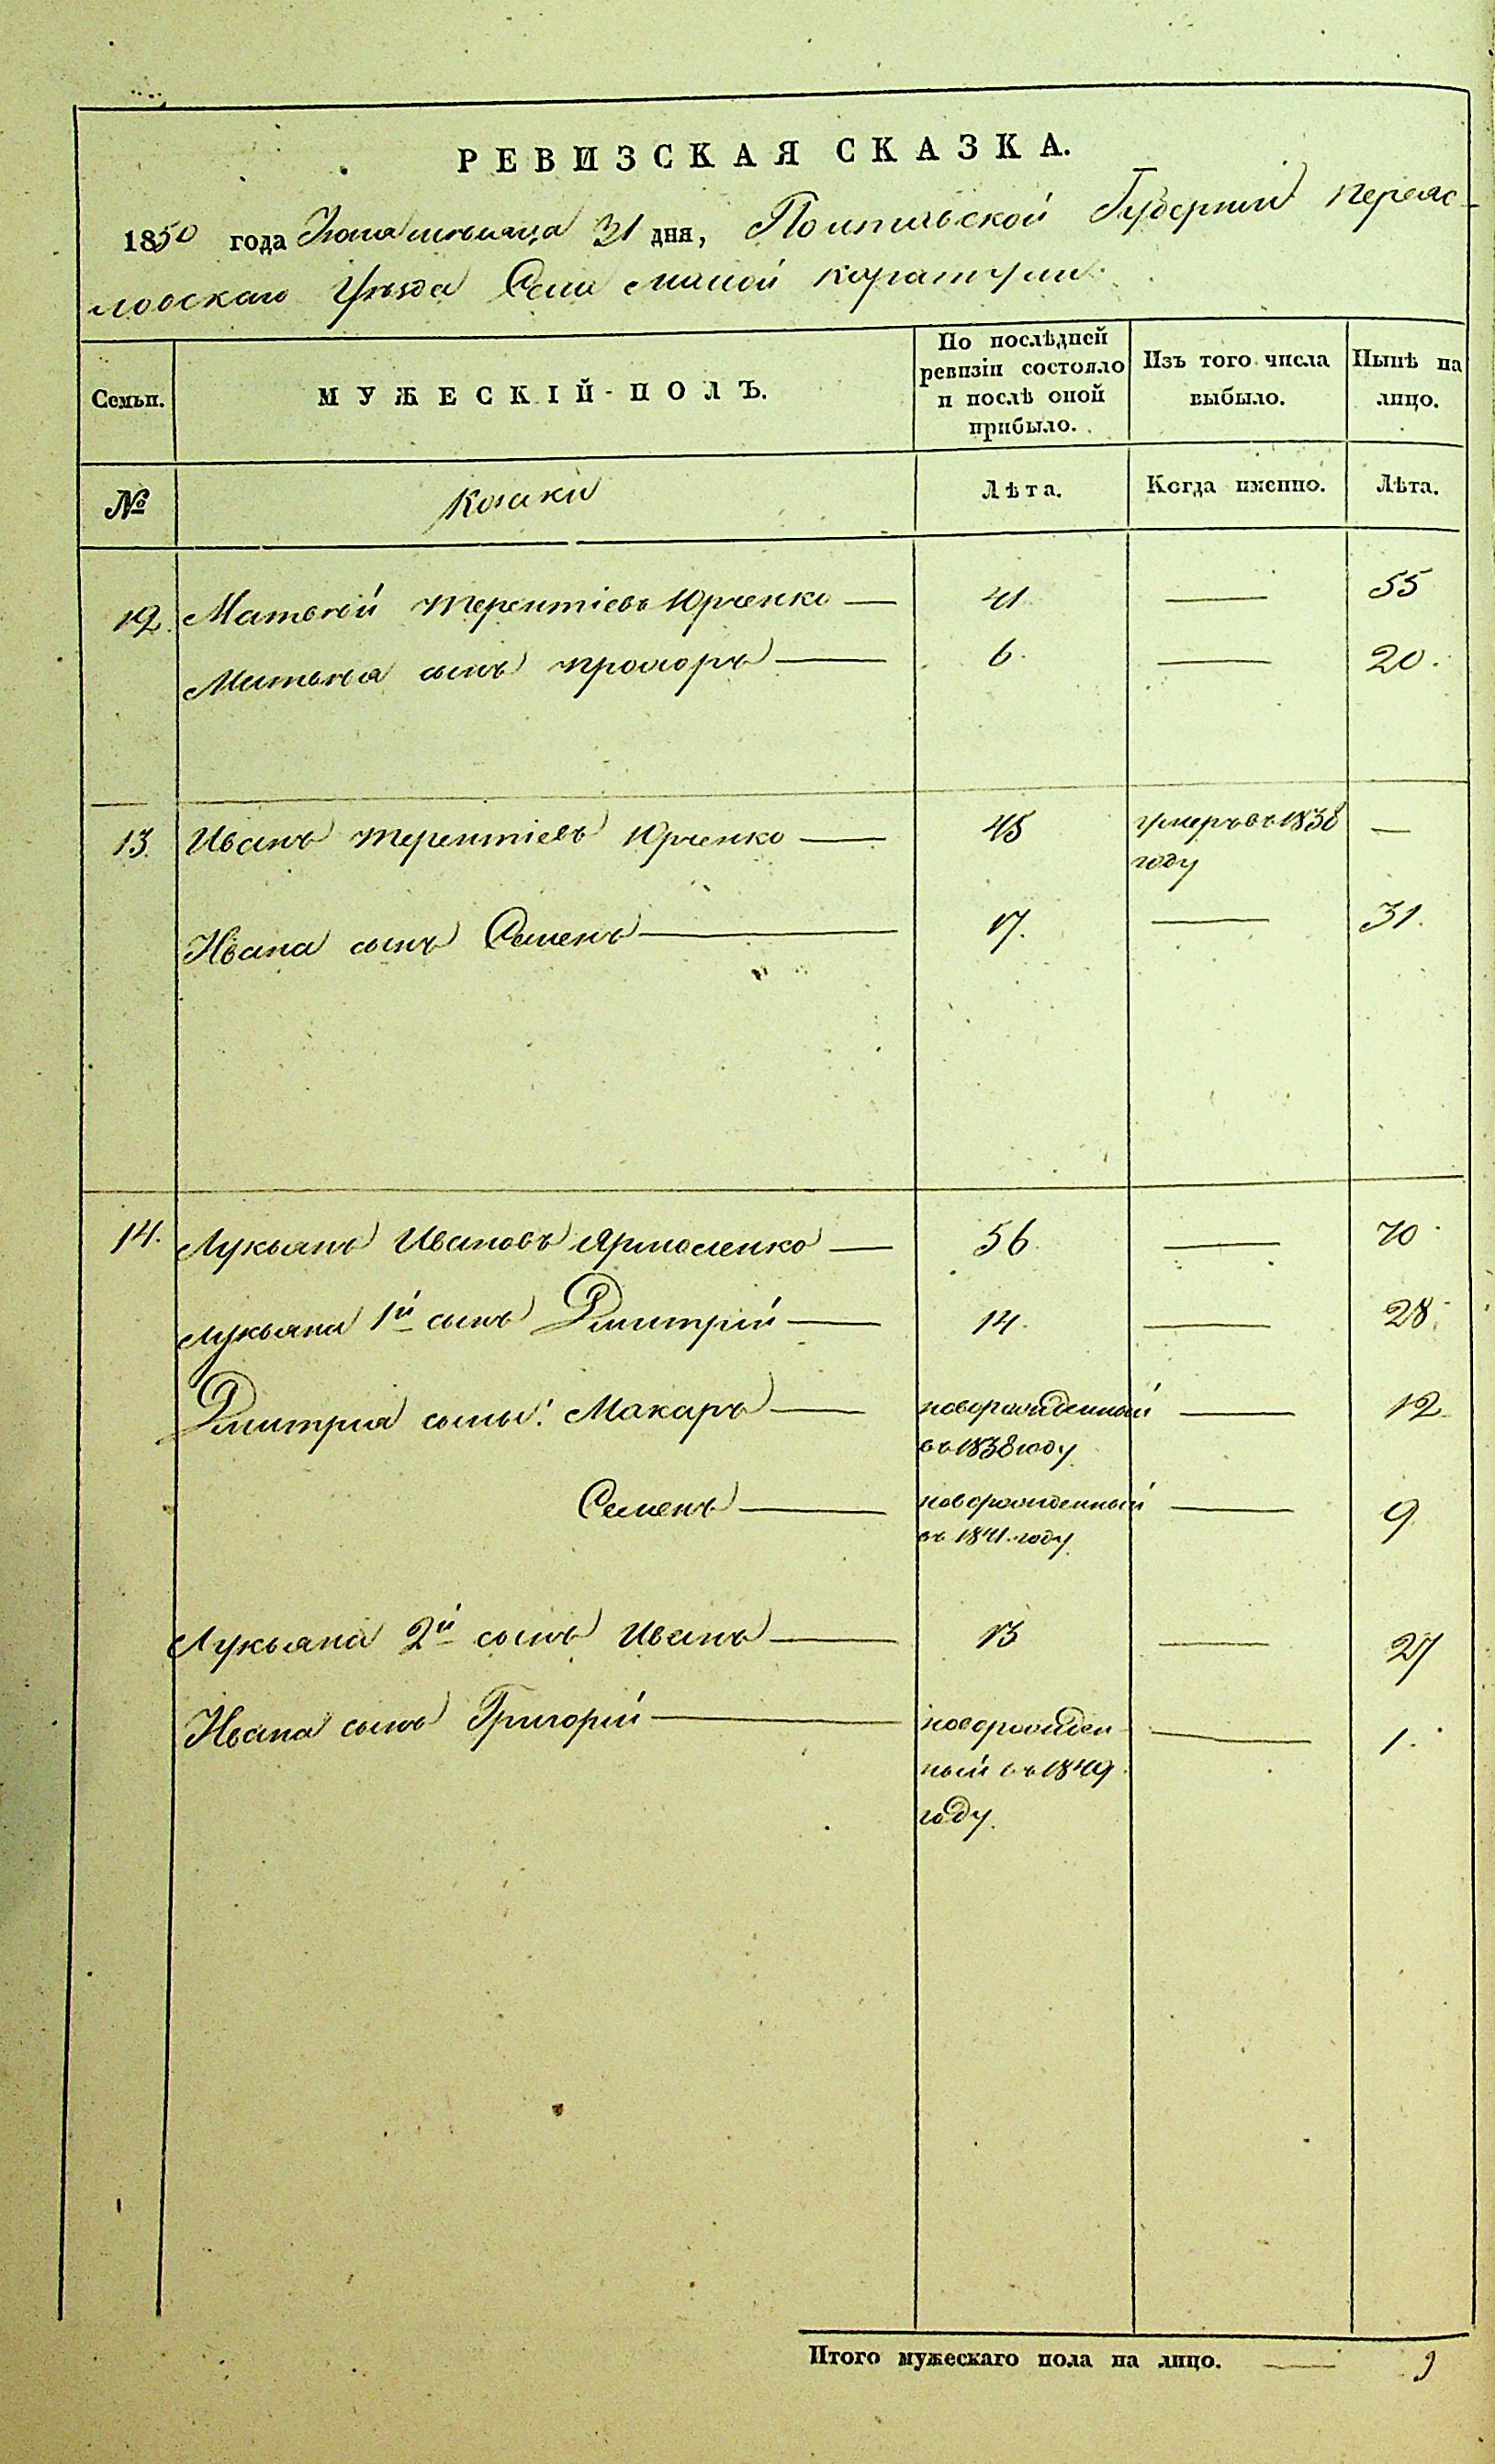 РЕВИЗСКАЯ СКАЗКА.
1850 года Июля мѣсяца 31 дня, Полтавской Губерніи Переяс-
ловскаго Уѣзда Села Малой Каратули
Семьи. МУЖЕСКІЙ ПОЛЪ. По послѣдней ревизіи состояло и послѣ оной прибыло. Изъ того числа выбыло. Нынѣ на лицо.
№ Козаки Лѣта. Когда именно. Лѣта.
12. Матвѣй Терентіевъ Юрченко — 41. — 55
Матвѣя сынъ Прохоръ — 6. — 20.
13. Иванъ Терентіевъ Юрченко — 45 умеръ въ 1838 —
году
Ивана сынъ Семенъ — 17. — 31.
14. Лукьянъ Ивановъ Ярмоленко — 56. — 70
Лукьяна 1й сынъ Дмитрій — 14. — 28.
Дмитрія сыны: Макаръ — новорожденный — 12
въ 1838 году
Семенъ — новорожденный — 9
въ 1841 году
Лукьяна 2й сынъ Иванъ — 13 — 27
Ивана сынъ Григорій — новорожден — 1.
ный въ 1849
году.
Итого мужескаго пола на лицо. — 9